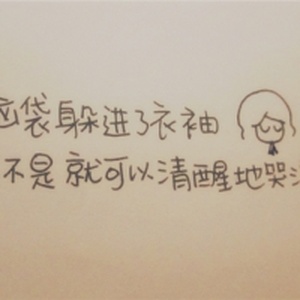 袋躲进了衣袖
不是就可以清醒地哭